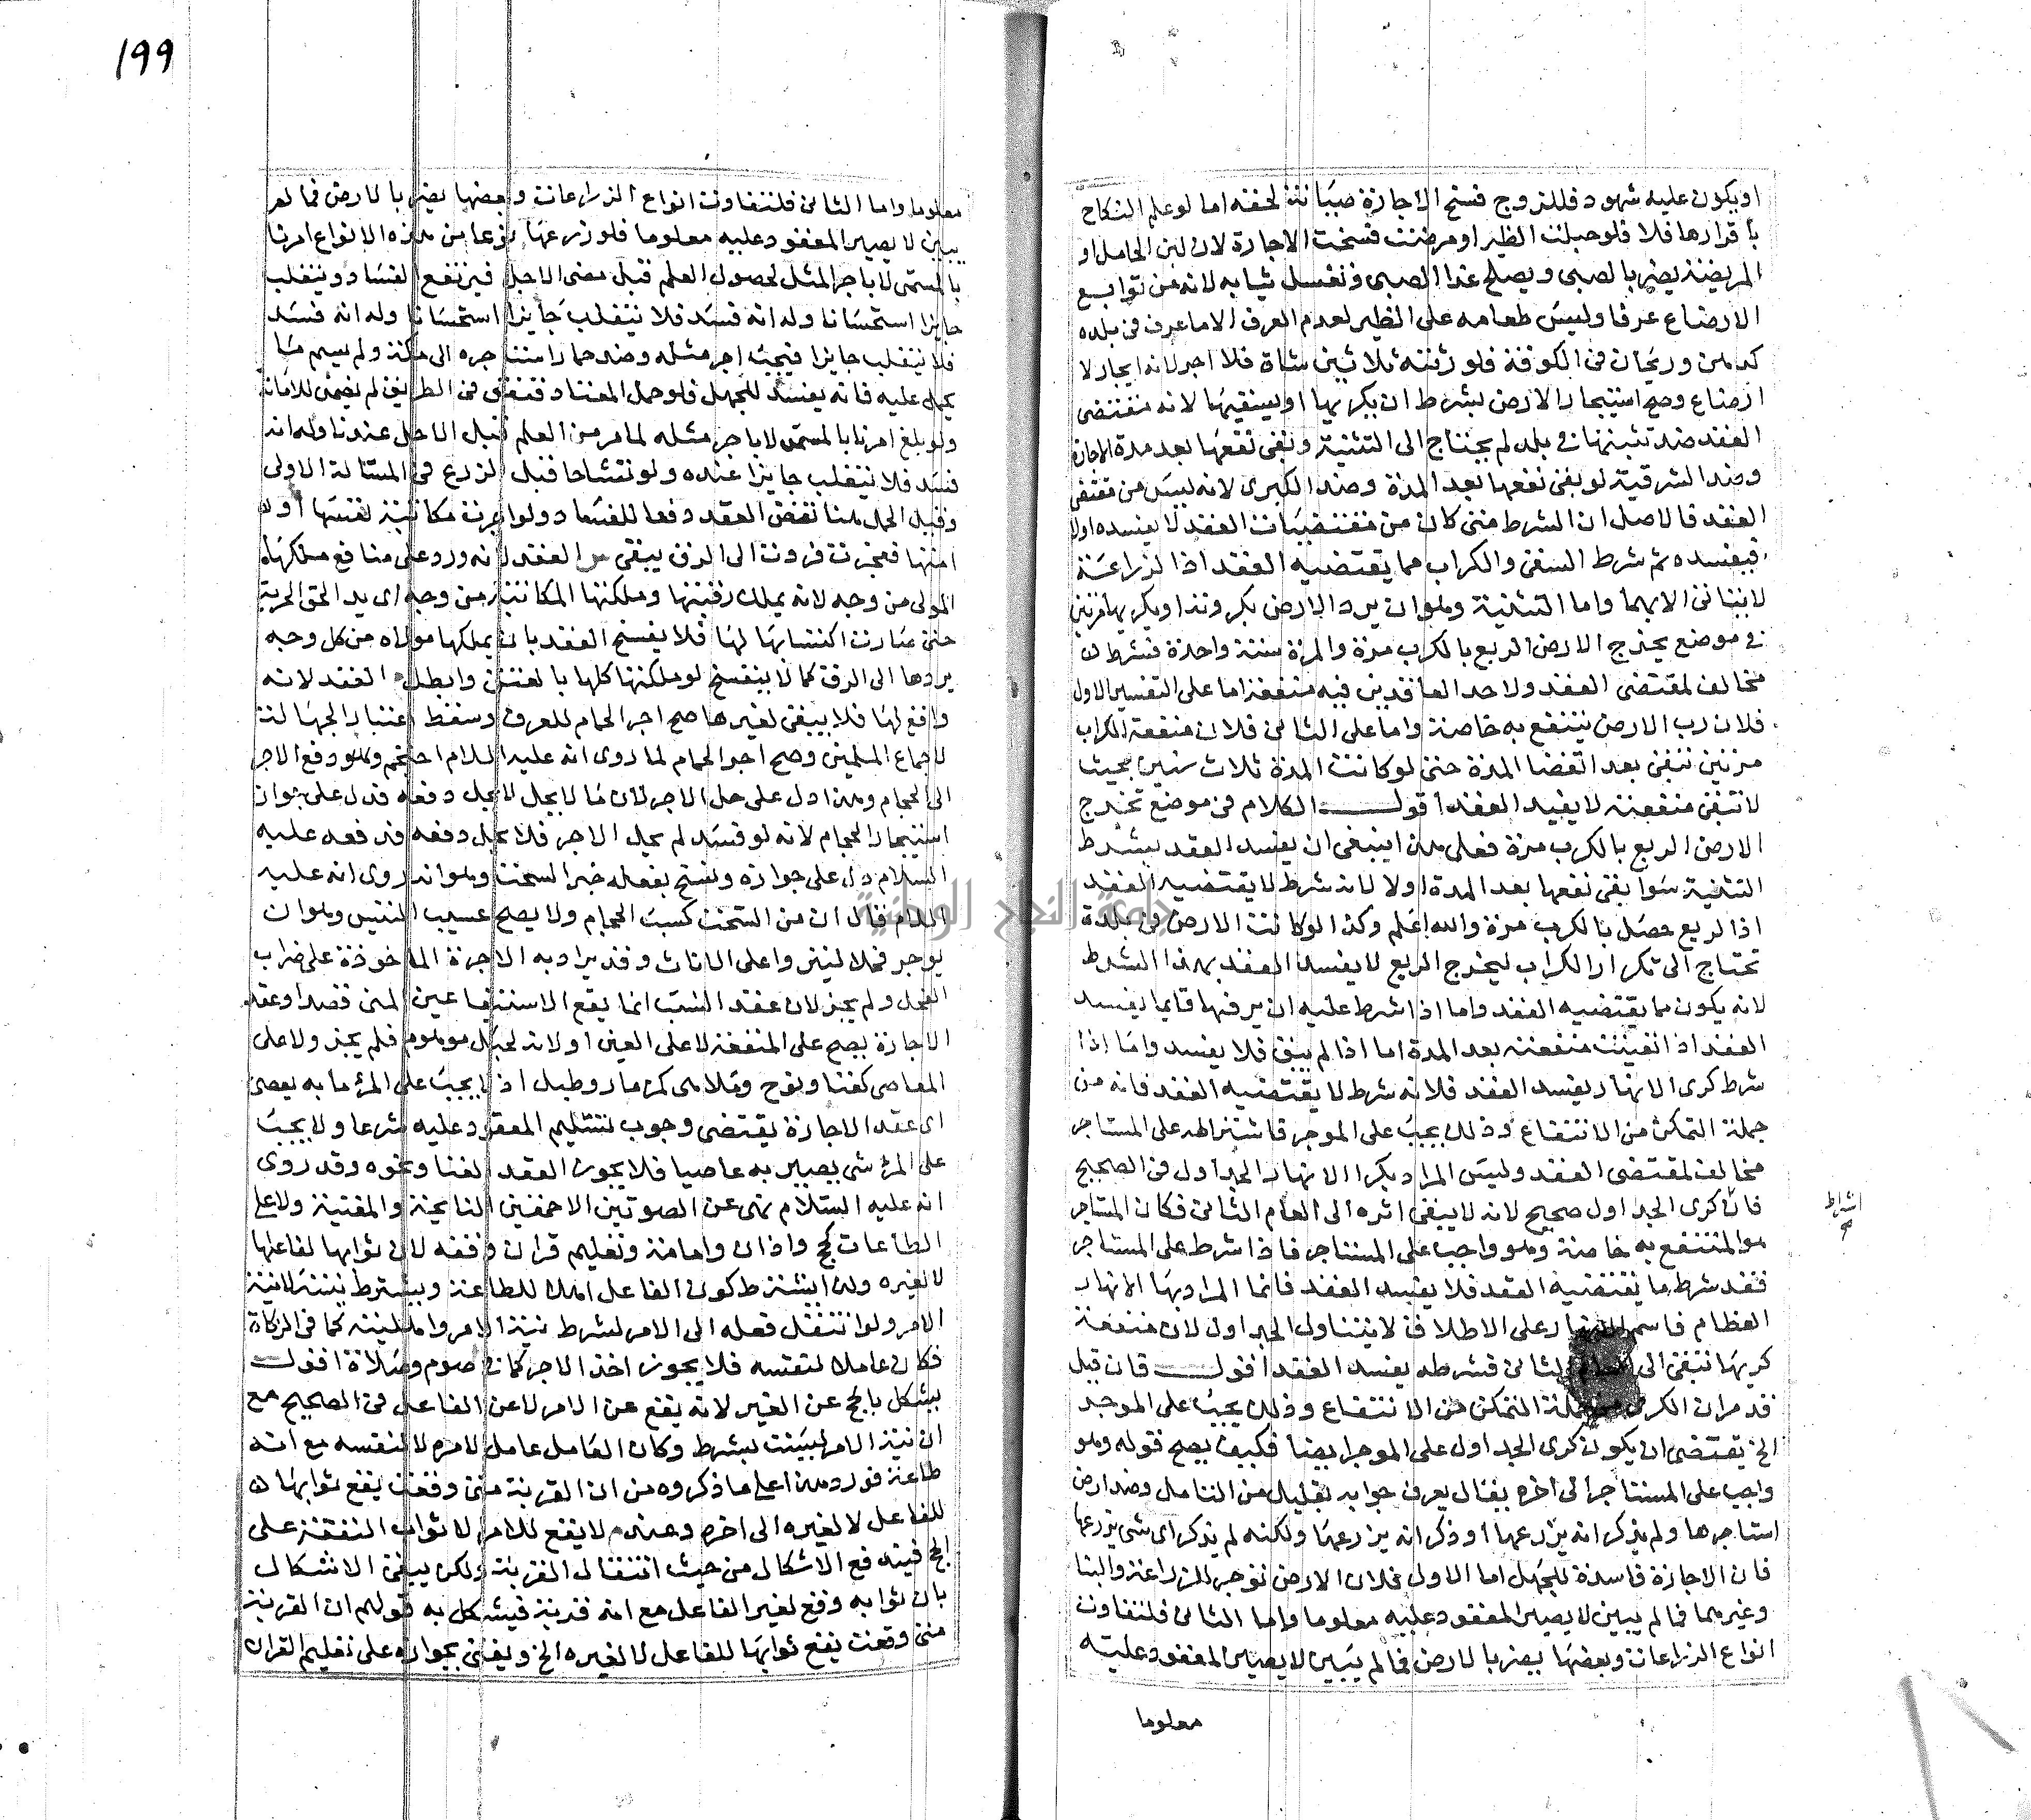 او يكون عليه شهود فللزوج فسخ الاجازة صيانة لحقه اما لو علم النكاح
باقرارها فلا فلو حبلت الظير او مرضت فسخت الاجارة لان لبن الحامل او
المريضة يضر بالصبى ويصلح غذا الصبى وتغسل ثيابه لانه من توابع
الارضاع عرفا وليس طعامه على الظير لعدم العرف الا ما عرف فى بلده
كدهن وريحان فى الكوفة فلو رضعته بلبن شاة فلا اجر لانه ايجار لا
ارضاع وصح استيجار الارض بشرط ان يكربها او يسقيها لانه مقتضى
العقد ضد تثنيتها فى بلد لم يحتاج الى التثنية وتبقى نفعها بعد مدة الاجارة
وضد الشرقية لو بقى نفعها بعد المدة وضد الكبرى لانه ليس من مقتضى
العقد فالاصل ان الشرط متى كان من مقتضيات العقد لا يفسده اولا
فيفسده ثم شرط السقى والكراب مما يقتضيه العقد اذ الزراعة
لا يتاتى الا بهما واما التثنية وهو ان يرد الارض مكروبة او يكربها مرتين
فى موضع يخرج الارض الريع بالكرب مرة والمدة سنة واحدة فشرط
مخالف لمقتضى العقد ولاحد العاقدين فيه منفعة اما على التفسير الاول
فلان رب الارض ينتفع به خاصة واما على الثانى فلان منفعة الكراب
مرتين تبقى بعد انقضا المدة حتى لو كانت المدة ثلاث سنين بحيث
لا تبقى منفعته لا يفيد العقد اقول الكلام فى موضع تخرج
الارض الريع بالكرب مرة فعلى هذا ينبغى ان يفسد العقد بشرط
التثنية سوا بقى نفعها بعد المدة اولا لانه شرط لا يقتضيه العقد
اذ الريع حصل بالكرب مرة والله اعلم وكذا لو كانت الارض فى بلدة
تحتاج الى تكرار الكراب ليخرج الريع لا يفسد العقد بهذا الشرط
لانه يكون مما يقتضيه العقد واما اذا شرط عليه ان يسرقنها فانما يفسد
العقد اذا بقيت منفعته بعد المدة اما اذا لم يبق فلا يفسد واما اذا
شرط كرى الانهار يفسد العقد فلانه شرط لا يقتضيه العقد فانه من
جملة التمكن من الانتفاع وذلك يجب على الموجر فاشتراطه على المستاجر
مخالف لمقتضى العقد وليس المراد بكرا الانهار الجداول فى الصحيح
اشراط
فان كرى الجداول صحيح لانه لا يبقى اثره الى العام الثانى فكان المستاجر
هو المنتفع به خاصة وهو واجب على المستاجر فاذا شرط على المستاجر
فقد شرط ما يقتضيه العقد فلا يفسد العقد فانما المراد بها الانهار
العظام فاسم الانهار على الاطلاق لا يتناول الجداول لان منفعة
كريها تبقى الى العام الثانى فشرطه يفسد العقد اقول فان قيل
قد مر ان الكرى من جملة التمكن من الانتفاع وذلك يجب على الموجر
الخ يقتضى ان يكون كرى الجداول على الموجر ايضا فكيف يصح قوله وهو
واجب على المستاجر الى اخره يقال يعرف جوابه بقليل من التامل وضد ارض
استاجرها ولم يذكر انه يزرعها او ذكر انه يزرعها ولكنه لم يذكر اى شى يزرعها
فان الاجازة فاسدة للجهل اما الاول فلان الارض توجر للزراعة والبنا
وغيرهما فما لم يبين لا يصير المعقود عليه معلوما واما الثانى فلتفاوت
انواع الزراعات وبعضها يضر بالارض فما لم يبين لا يصير المعقود عليه
معلوما
١٩٩
معلوما واما الثانى فلتفاوت انواع الزراعات وبعضها يضر بالارض فما لم
يبين لا يصير المعقود عليه معلوما فلو زرعها نوعا من هذه الانواع امرنا
بالمسمى لا باجر المثل لحصول العلم قبل مضى الاجل فيرتفع الفساد وينقلب
جايزا استحسانا وله انه فسد فلا ينقلب جايزا استحسانا وله انه فسد
فلا ينقلب جايزا فيجب اجر مثله وضد حمار استاجره الى مكة ولم يسم ما
يحمل عليه فانه يفسد للجهل فلو حمل المعتاد فنفق فى الطريق لم يضمن للامانة
ولو بلغ امرنا بالمسمى لا باجر مثله لما مر من العلم قبل الاجل عندنا وله انه
فسد فلا ينقلب جايزا عنده ولو تشاحا قبل الزرع فى المسئالة الاولى
وقبل الحمل هنا نقض العقد دفعا للفساد ولو اجرت مكاتبة نفسها او
امتها فعجزت فردت الى الرق يبقى العقد لانه ورد على منافع ملكها
المولى من وجه لانه يملك رقبتها وملكتها المكاتبة من وجه اى يد الحق الحرية
حتى صارت اكتسابها لها فلا يفسخ العقد بان يملكها مولاه من كل وجه
بردها الى الرق كما لا ينفسخ لو ملكتها كلها بالعتق وابطل العقد لانه
واقع لها فلا يبقى لغيرها صح اجر الحمام للعرف وسقط اعتبار الجهالة
لاجماع المسلمين وصح اجر الحجام لما روى انه عليه السلام احتجم ودفع الاجر
الى الحجام وهذا دل على حل الاجر لان ما لا يحل لا يحل دفعه فدل على جواز
استيجار الحجام لانه لو فسد لم يحل الاجر فلا يحل دفعه فدفعه عليه
السلام دل على جوازه ونسخ بفعله خبر السحت وهو انه روى انه عليه
السلام قال ان من السحت كسب الحجام ولا يصح عسيب التيس وهو ان
يوجر فحلا لينزوا على الاناث وقد يراد به الاجرة الماخوذة على ضراب
الفحل ولم يجز لان عقد السبب انما يقع الاستيفا عين المنى قصدا وعقد
الاجازة يصح على المنفعة لا على العين او لانه لحبل موهوم فلم يجز ولا على
المعاصى كغنا ونوح وملاهى كمزمار وطبل اذ لا يجب على المرء ما به يعصى
اى عقد الاجازة يقتضى وجوب تسليم المعقود عليه شرعا ولا يجب
على المرء شى يصير به عاصيا فلا يجوز العقد الغنا ونحوه وقد روى
انه عليه السلام نهى عن الصوتين الاحمقين النايحة والمغنية ولا على
الطاعات كحج واذان وامامة وتعليم قران وفقه لان ثوابها لفاعلها
لا لغيره ولذا يشترط كون الفاعل اهلا للطاعة ويشترط نيته لا نية
الامر ولو انتقل فعله الى الامر لشرط نية الامر واهليته كما فى الزكاة
فكان عاملا لنفسه فلا يجوز اخذ الاجر كما فى صوم وصلاة اقول
يشكل بالحج عن الغير لانه يقع عن الامر لا عن الفاعل فى الصحيح مع
ان نية الامر ليست بشرط وكان العامل عامل لامره لا لنفسه مع انه
طاعة فورد هذا على ما ذكروه من ان القربة متى وقعت يقع ثوابها
للفاعل لا لغيره الى اخره وعند لا يقع للامر الا ثواب النفقة على
الحج فيندفع الاشكال من حيث انتقال القربة ولكن يبقى الاشكال
بان ثوابه وقع لغير الفاعل مع انه قربة فيشكل به قولهم ان القربة
متى وقعت يقع ثوابها للفاعل لا لغيره الخ ويفتى بجوازه على تعليم القران